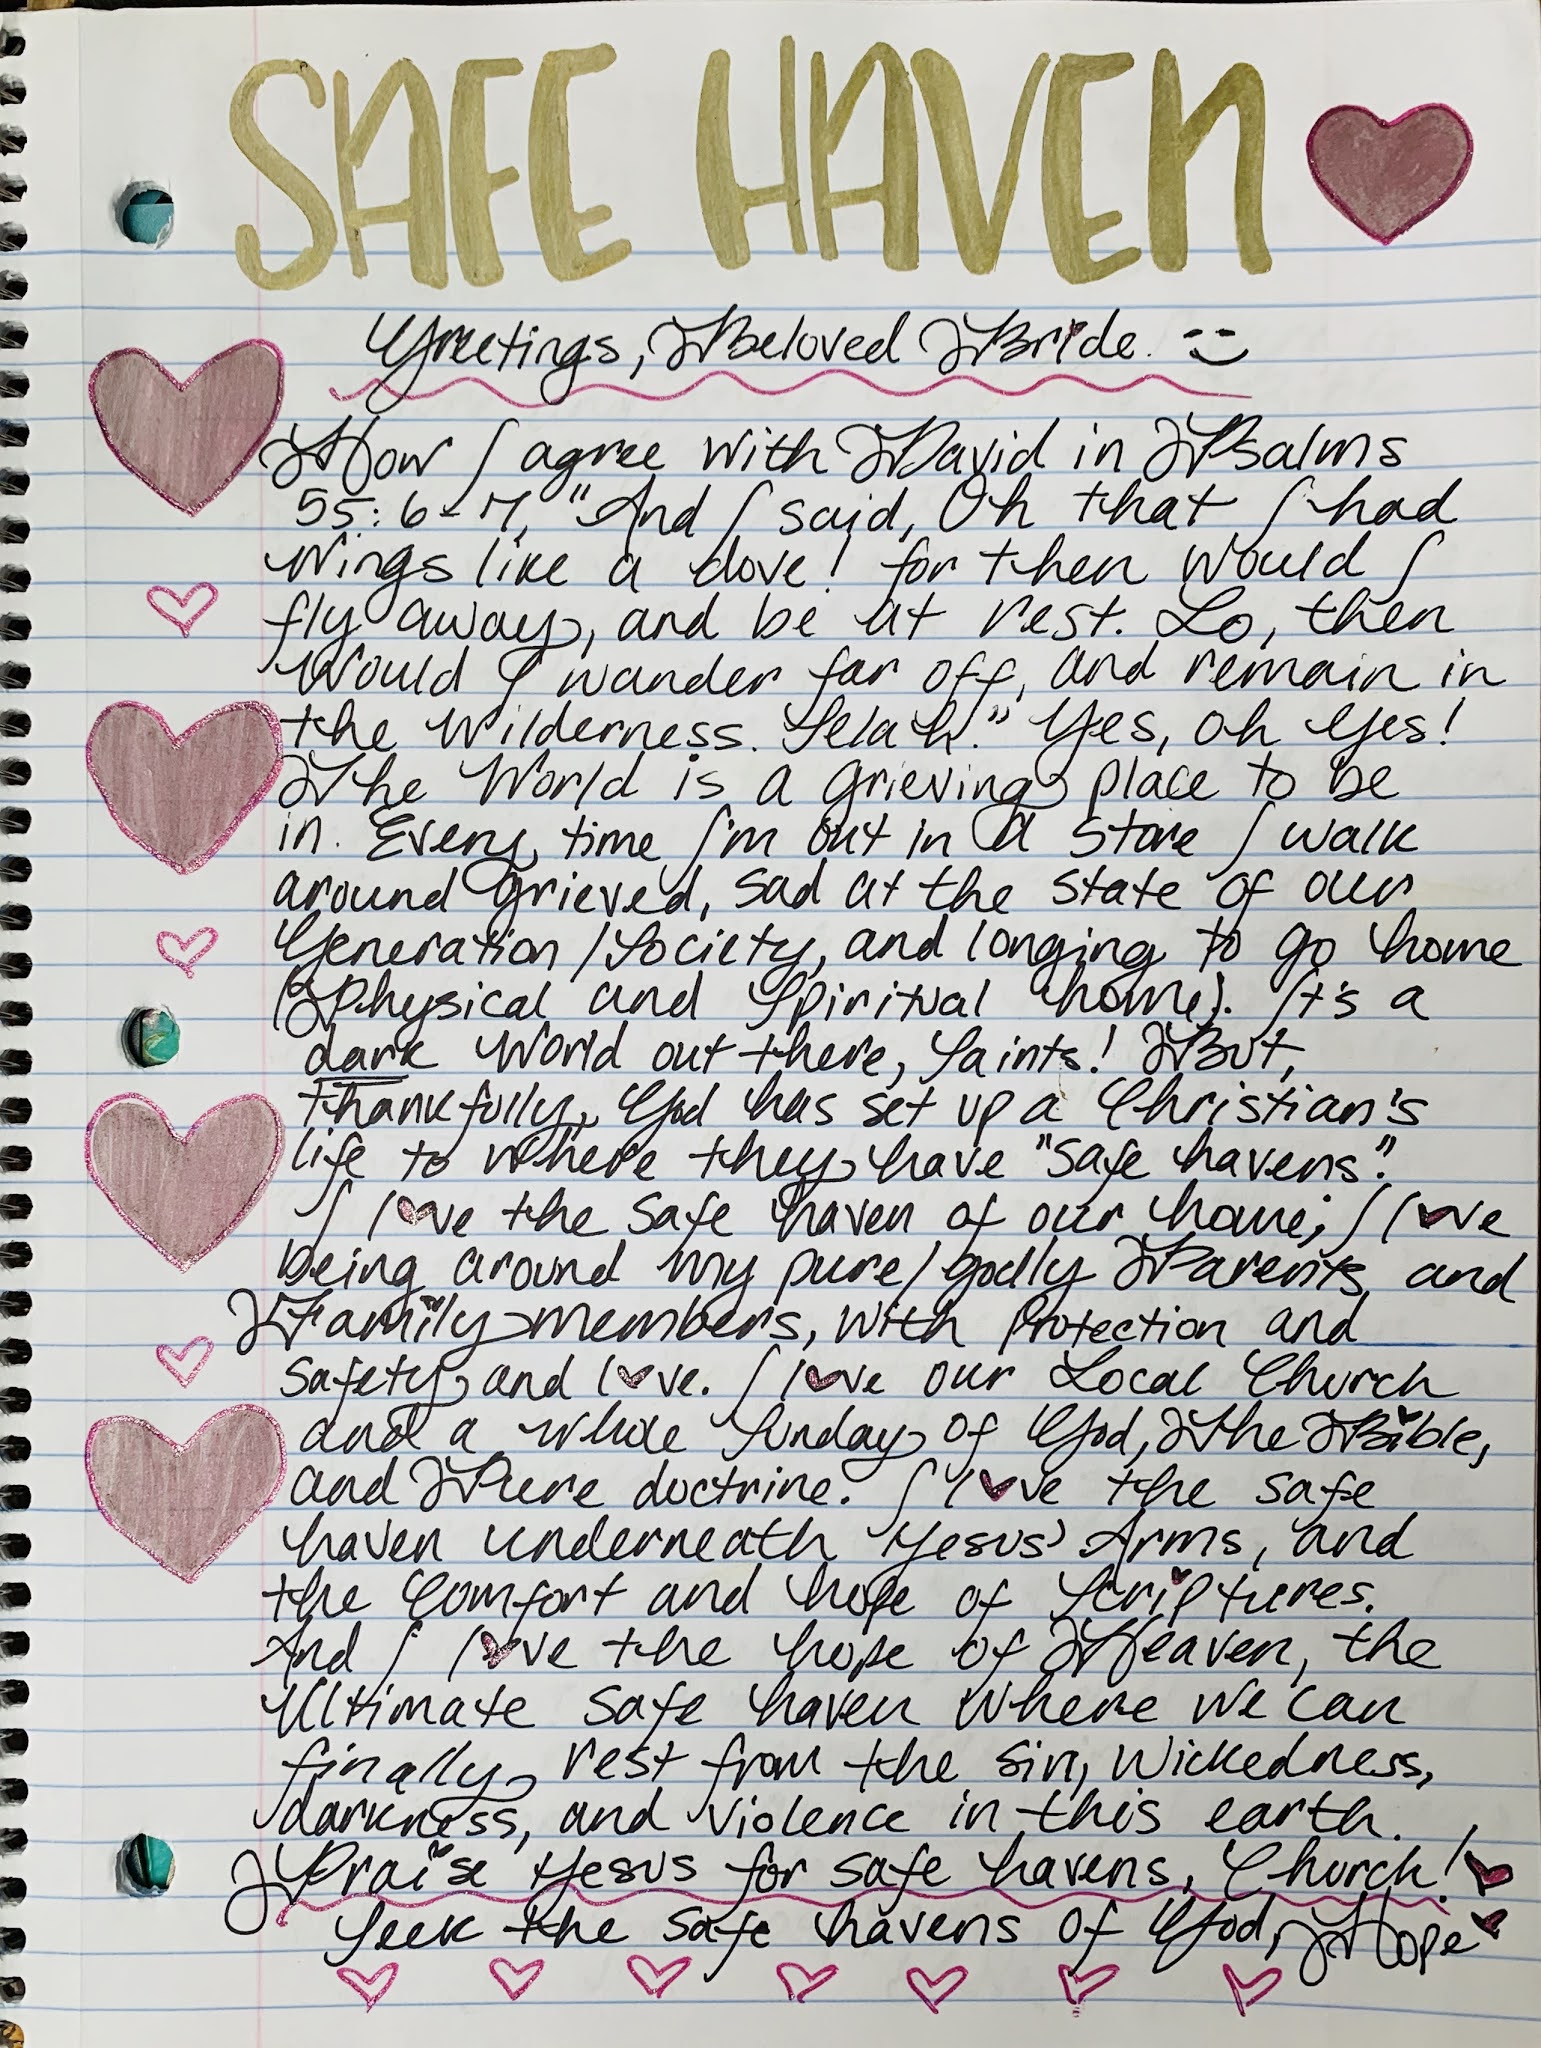 SAFE HAVEN
Greetings, Beloved Bride.
How I agree with David in Psalms
55:6-7, "And I said, Oh that I had
wings like a dove! for then would I
fly away, and be at rest. Lo, then
would I wander far off, and remain in
the wilderness. Selah." Yes, oh yes!
The world is a grieving place to be
in. Every time I'm out in a store I walk
around grieved, sad at the state of our
Generation/Society, and longing to go home
(Physical and Spiritual home). It's a
dark world out there, Saints! But,
thankfully, God has set up a Christian's
life to where they have "safe havens".
I love the safe haven of our home; I love
being around my pure/godly Parents, and
Family members, with protection and
safety and love. I love our Local Church
and a whole Sunday of God, The Bible,
and Pure doctrine. I love the safe
haven underneath Jesus' Arms, and
the comfort and hope of Scriptures.
And I love the hope of Heaven, the
Ultimate safe haven where we can
finally rest from the sin, wickedness,
darkness, and violence in this earth.
Praise Jesus for safe havens, Church!
Seek the safe havens of God, Hope